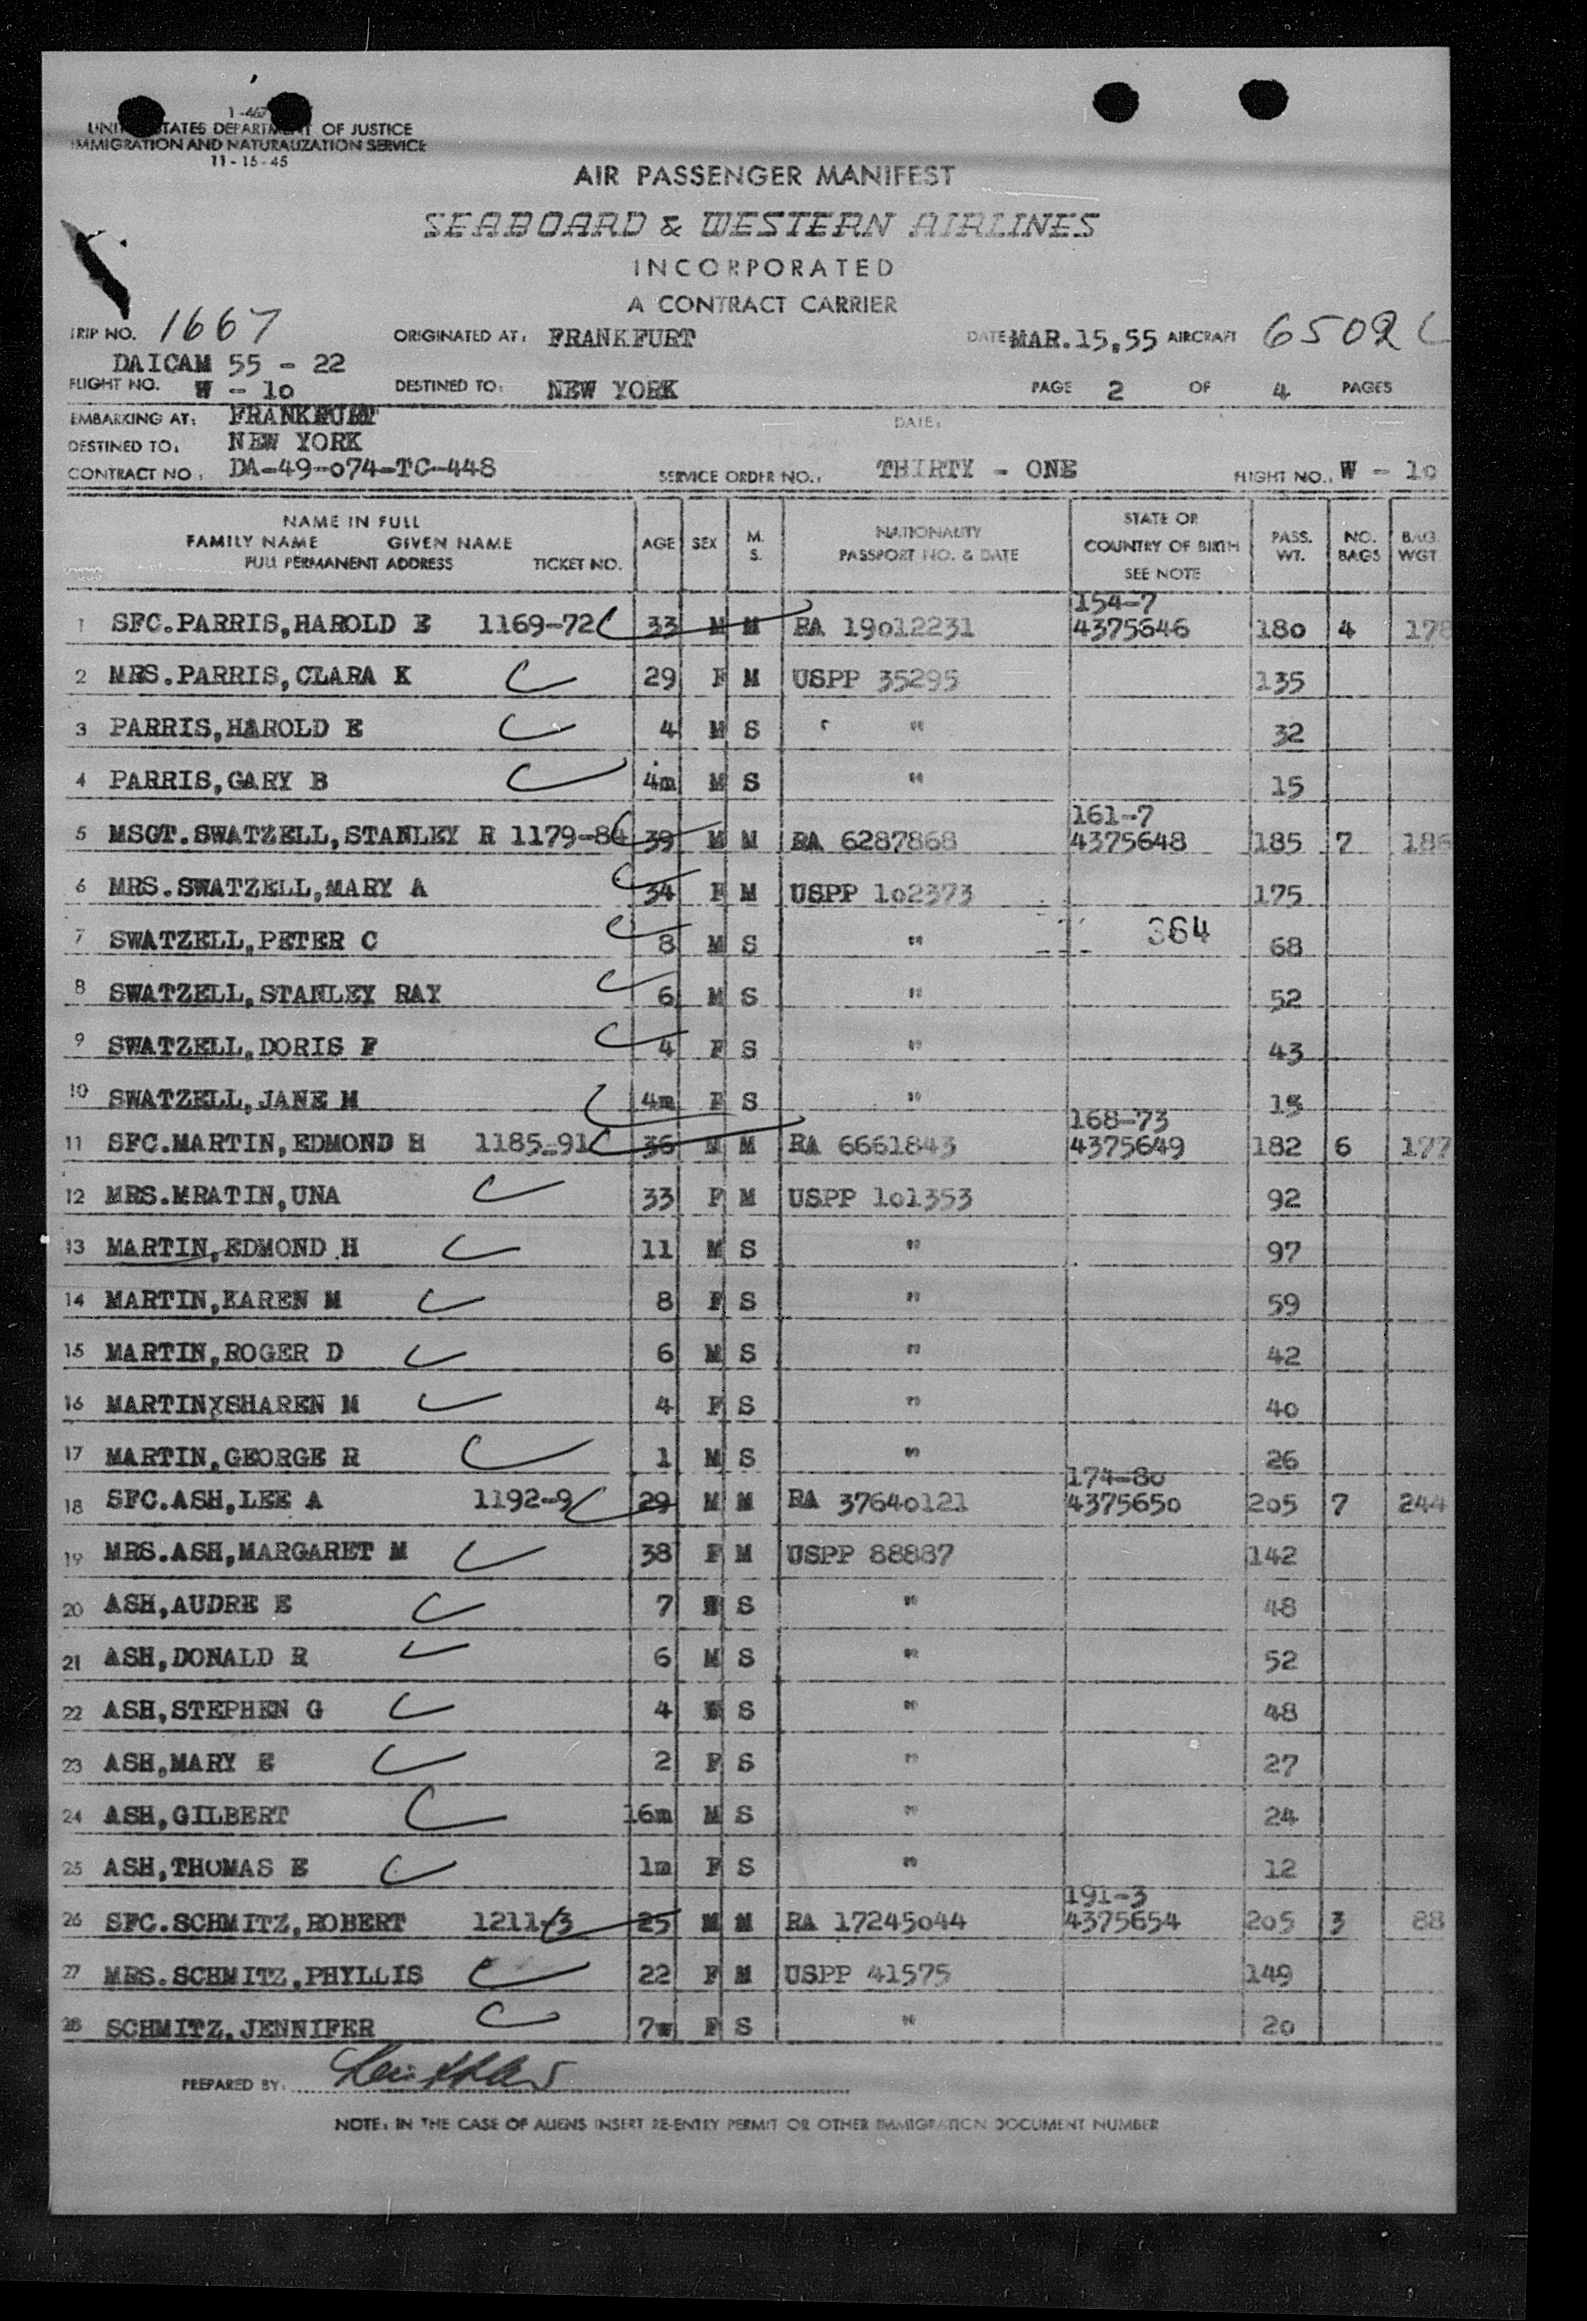 1-467
UNITED STATES DEPARTMENT OF JUSTICE
IMMIGRATION AND NATURALIZATION SERVICE
11-15-45
AIR PASSENGER MANIFEST
SEABOARD & WESTERN AIRLINES
INCORPORATED
A CONTRACT CARRIER
TRIP NO. 1667 ORIGINATED AT: FRANKFURT DATE MAR.15,55 AIRCRAFT 6502C
DAICAM 55 - 22
FLIGHT NO. W - 1o DESTINED TO: NEW YORK PAGE 2 OF 4 PAGES
EMBARKING AT: FRANKFURT DATE:
DESTINED TO: NEW YORK
CONTRACT NO: DA-49-o74-TC-448 SERVICE ORDER NO.: THIRTY - ONE FLIGHT NO.: W - 1o
NAME IN FULL
FAMILY NAME GIVEN NAME
FULL PERMANENT ADDRESS TICKET NO. AGE SEX M. S. NATIONALITY PASSPORT NO. & DATE STATE OR COUNTRY OF BIRTH SEE NOTE PASS. WT. NO. BAGS BAG. WGT.
154-7
1 SFC.PARRIS,HAROLD E 1169-72 33 M M RA 19o12231 4375646 18o 4 178
2 MRS.PARRIS,CLARA K 29 F M USPP 35295 135
3 PARRIS,HAROLD E 4 M S " " 32
4 PARRIS,GARY B 4m M S " 15
161-7
5 MSGT.SWATZELL,STANLEY R 1179-84 39 M M RA 6287868 4375648 185 7 186
6 MRS.SWATZELL,MARY A 34 F M USPP 1o2373 175
7 SWATZELL,PETER C 8 M S " 364 68
8 SWATZELL,STANLEY RAY 6 M S " 52
9 SWATZELL,DORIS F 4 F S " 43
10 SWATZELL,JANE M 4m F S " 15
168-73
11 SFC.MARTIN,EDMOND H 1185-91 36 M M RA 6661843 4375649 182 6 177
12 MRS.MRATIN,UNA 33 F M USPP 1o1353 92
13 MARTIN,EDMOND H 11 M S " 97
14 MARTIN,KAREN M 8 F S " 59
15 MARTIN,ROGER D 6 M S " 42
16 MARTINySHAREN M 4 F S " 4o
17 MARTIN,GEORGE R 1 M S " 26
174-8o
18 SFC.ASH,LEE A 1192-9 29 M M RA 3764o121 437565o 2o5 7 244
19 MRS.ASH,MARGARET M 38 F M USPP 88887 142
20 ASH,AUDRE E 7 S " 48
21 ASH,DONALD R 6 M S " 52
22 ASH,STEPHEN G 4 S " 48
23 ASH,MARY E 2 F S " 27
24 ASH,GILBERT 16m M S " 24
25 ASH,THOMAS E 1m F S " 12
191-3
26 SFC.SCHMITZ,ROBERT 1211-3 25 M M RA 17245o44 4375654 2o5 3 88
27 MRS.SCHMITZ,PHYLLIS 22 F M USPP 41575 149
28 SCHMITZ,JENNIFER 7w F S " 2o
PREPARED BY:
NOTE: IN THE CASE OF ALIENS INSERT RE-ENTRY PERMIT OR OTHER IMMIGRATION DOCUMENT NUMBER